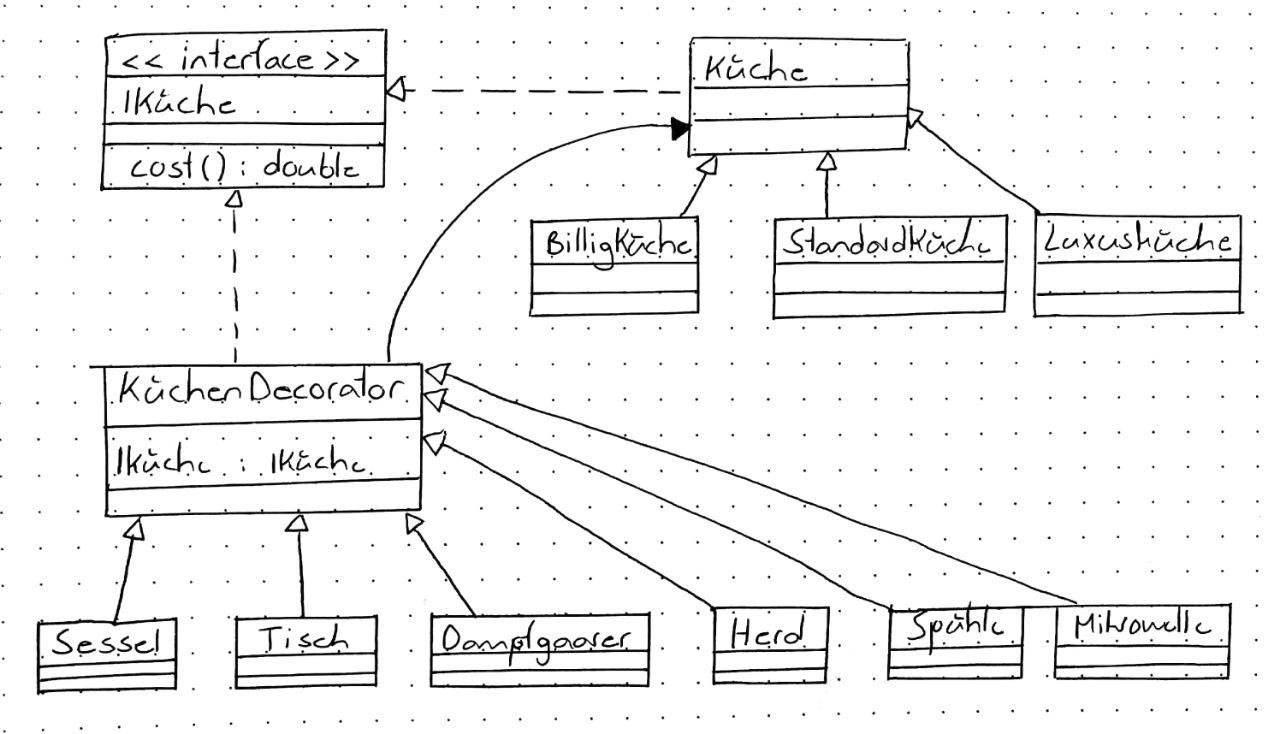 << interface >>
IKüche
cost() : double
Küche
BilligKüche
StandardKüche
Luxusküche
KüchenDecorator
IKüche : IKüche
Sessel
Tisch
Dampfgaarer
Herd
Spühle
Mikrowelle